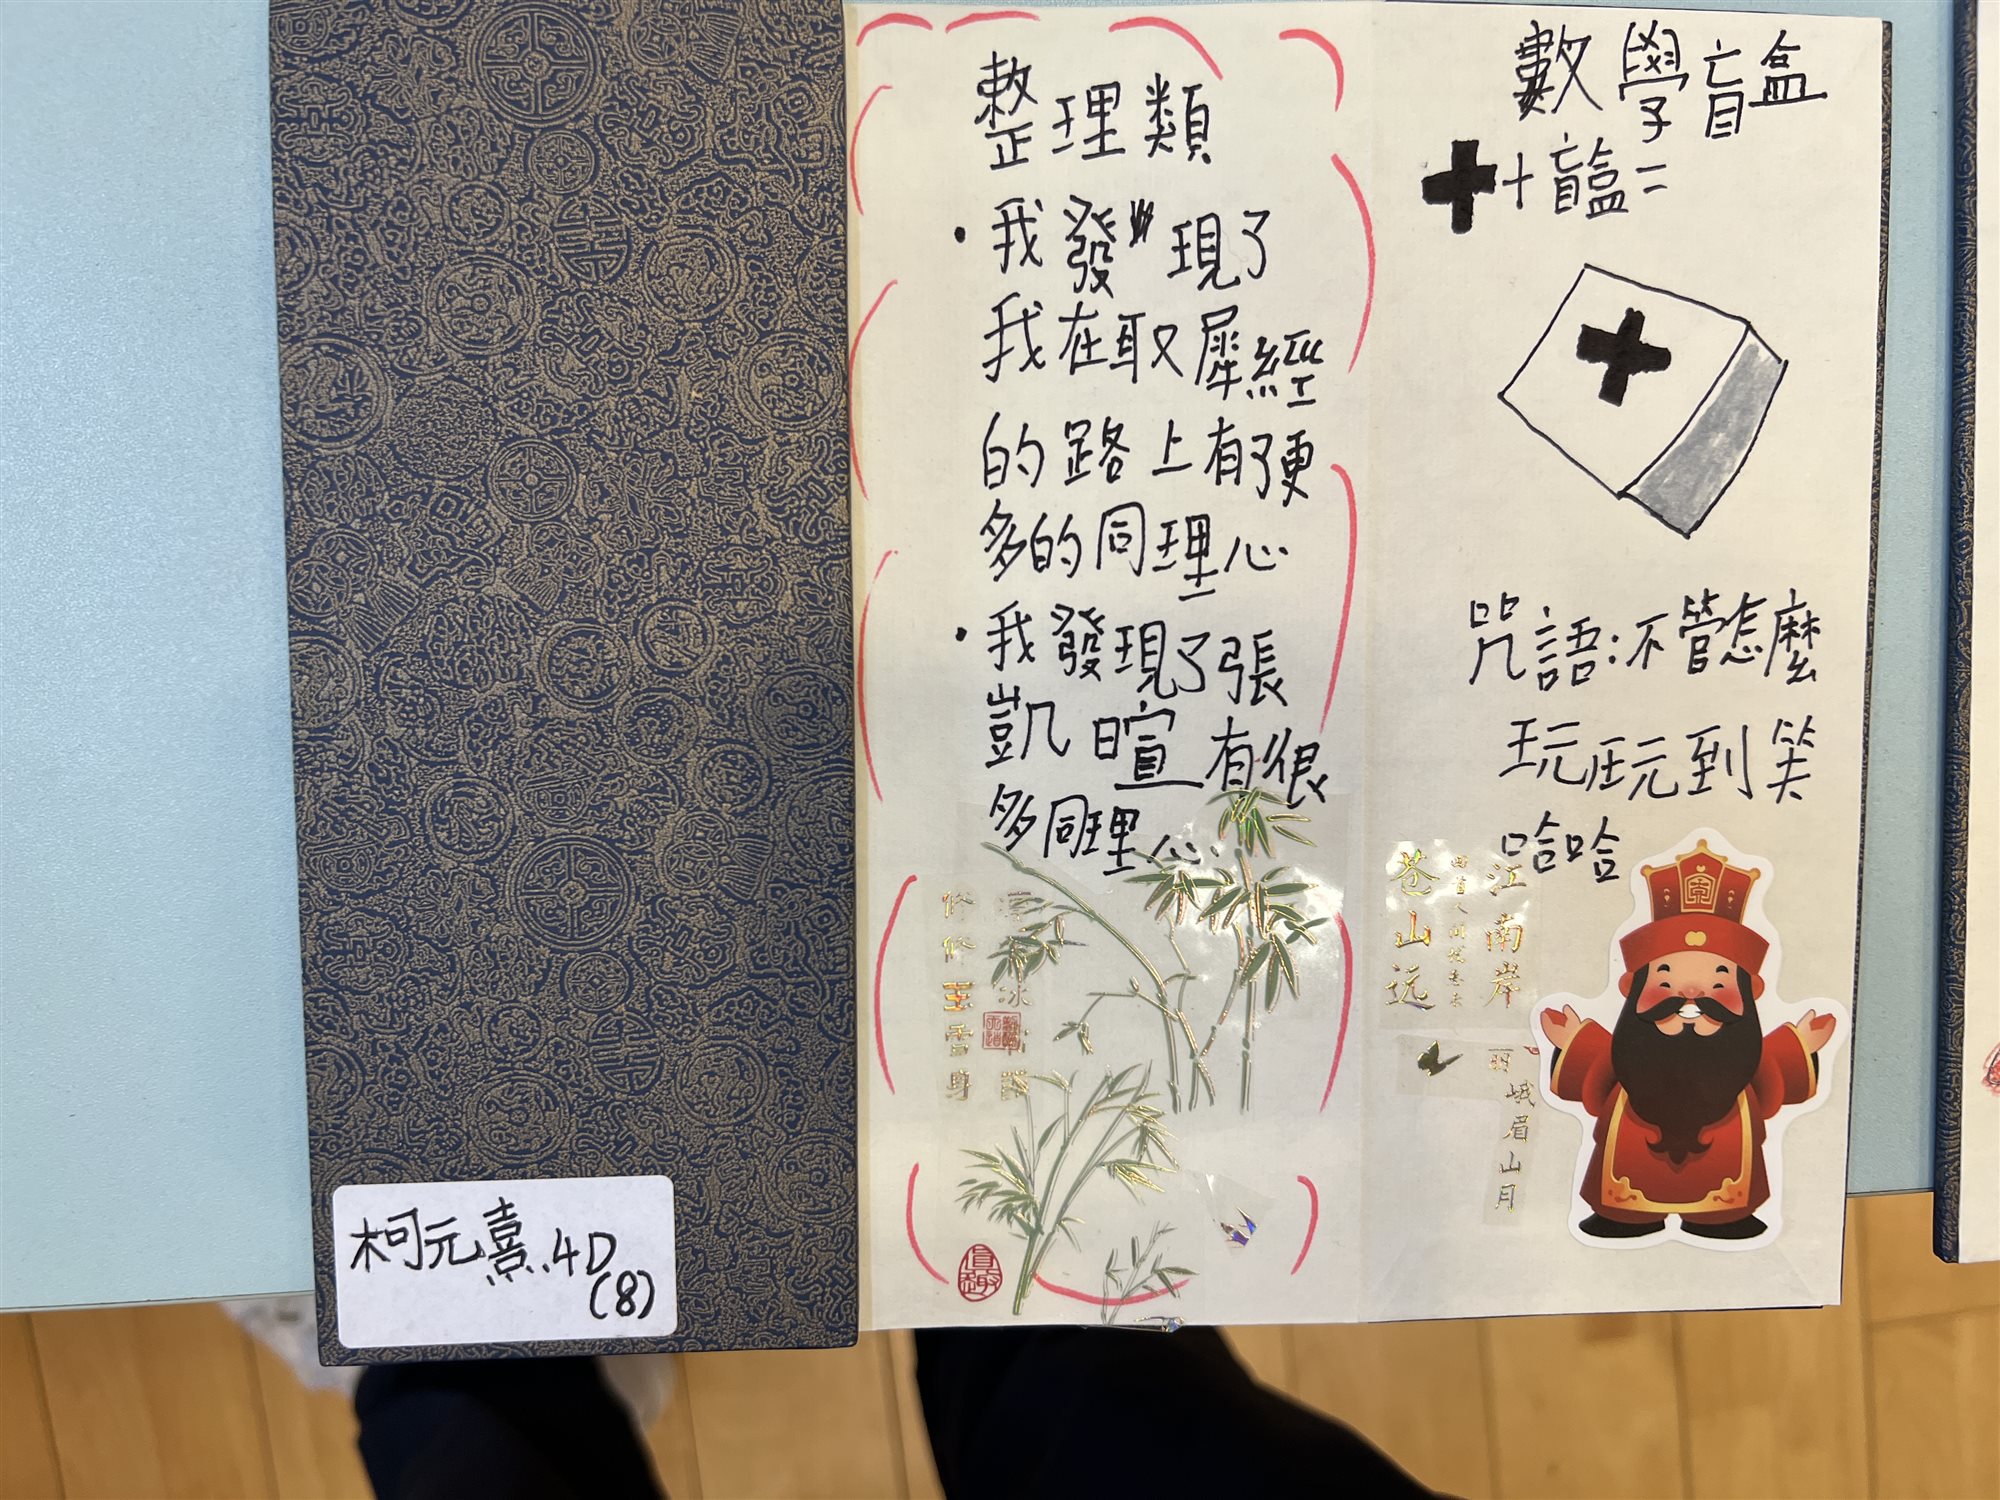 整理類
·我發現了
我在取犀經
的路上有了更
多的同理心
·我發現了張
凱暄有很
多同理心
修修玉雪身
數學盲盒
✚+盲盒=
咒語:不管怎麼
玩玩到笑
哈哈
江南岸
苍山远
峨眉山月
柯元熹.4D
(8)